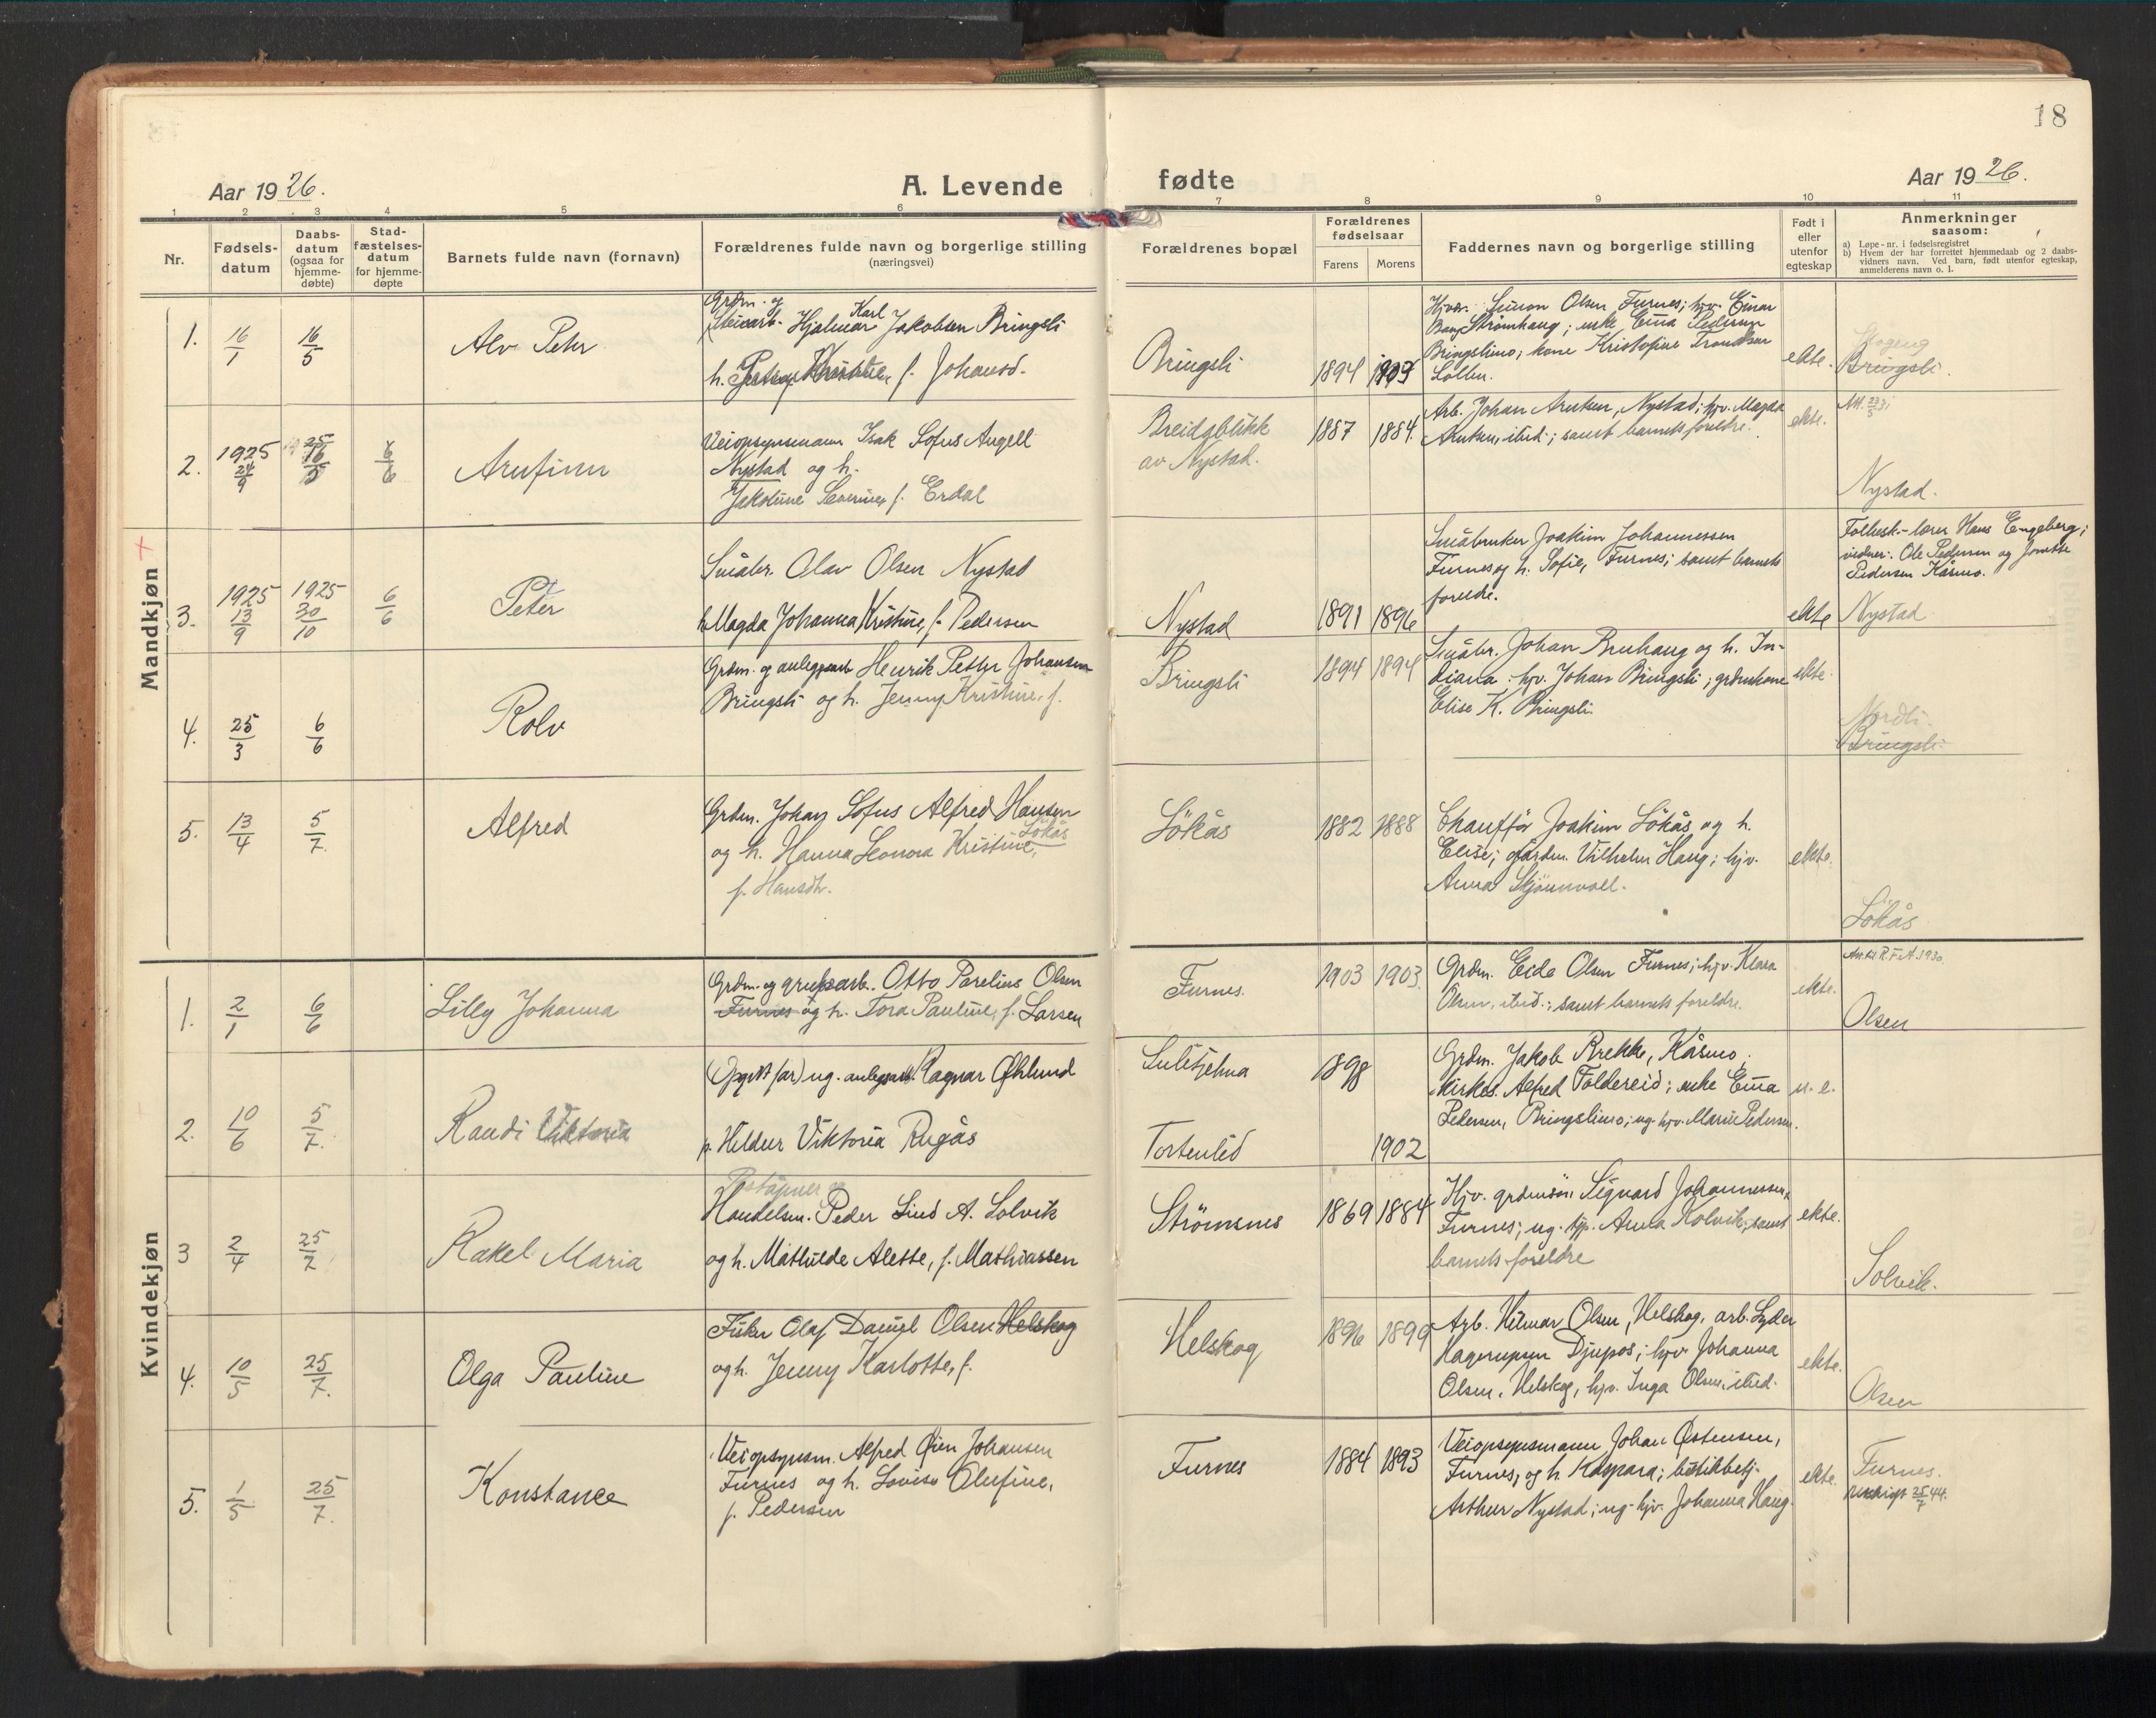 18
Aar 1926.
A. Levende
fødte
Aar 1926.
1 2 3 4 5 6 7 8 9 10 11
Nr.
Fødsels-
datum
Daabs-
datum
(ogsaa for
hjemme-
døbte)
Stad-
fæstelses-
datum
for hjemme-
døpte
Barnets fulde navn (fornavn)
Forældrenes fulde navn og borgerlige stilling
(næringsvei)
Forældrenes bopæl
Forældrenes
fødselsaar
Farens
Morens
Faddernes navn og borgerlige stilling
Født i
eller
utenfor
egteskap
Anmerkninger
saasom:
a) Løpe-nr. i fødselsregistret
b) Hvem der har forrettet hjemmedaab og 2 daabs-
vidners navn. Ved barn, født utenfor egteskap,
anmelderens navn o. l.
Mandkjøn
1. 16/1 16/5
Alv Peter
Grdm. og
Karl
Hjalmar Jakobsen Bringsli
h. Kristine, f. Johansd.
Bringsli
1894 1903
Simon Olsen Furnes; hjv. Einar
Strömhaug; enke Ema Pedersen
Bringslimo; kone Kristofine
ekte.
Bringsli.
2. 1925 24/9 6/6
Arnfinn
Veiopsynsmann Isak Sofus Angell
Nystad og h.
Jakobine Severine, f. Erdal
Breidablikk
av Nystad.
1887 1884.
Arb. Johan Arntsen, Nystad; hjv. Magda
Arntsen, ibid.; samt barnets foreldre.
ekte.
Nystad.
3. 1925 13/9 1925 30/10 6/6
Peter
Småbr. Olav Olsen Nystad
h. Magda Johanna Kristine, f. Pedersen
Nystad
1891 1896
Småbruker Joakim Johannessen
Furnes og h. Sofie, Furnes; samt barnets
foreldre.
ekte
Folkesk.-lærer Hans Engeberg;
vidner: Ole Pedersen og Jonette
Pedersen Kåsmo.
Nystad
4. 25/3 6/6
Rolv
Grdm. og anlegsarb. Henrik Petter Johansen
Bringsli og h. Jenny Kristine, f.
Bringsli
1894 1894
Småbr. Johan Bruhaug og h. In-
diana; hjv. Johan Bringsli; grdmkone
Elise K. Bringsli.
ekte.
Nordli.
Bringsli
5. 13/4 5/7.
Alfred
Grdm. Johan Sofus Alfred Hansen
Lökås
og h. Hanna Leonora Kristine,
f. Hansdtr.
Lökås
1882 1888
Chaufför Joakim Lökås og h.
Elise; gårdm. Vilhelm Haug; hjv.
Anna Skjönnvoll.
ekte.
Lökås
Kvindekjøn
1. 2/1 6/6
Lilly Johanna
Grdm. og grubearb. Otto Parelius Olsen
Furnes og h. Tora Pauline, f. Larsen
Furnes.
1903 1903.
Grdm. Eide Olsen Furnes; hjv. Klara
Olsen, ibid.; samt barnets foreldre.
ekte.
Olsen
2. 10/6 5/7.
Randi Viktoria
Opgitt far) ug. anlegsarb. Ragnar Øhlund
p. Hildur Viktoria Rugås
Sulitjelma
Tortenlid
1898
1902
Grdm. Jakob Brekke, Kåsmo;
kirkes. Alfred Foldereid; enke Ema
Pedersen, Bringslimo; ug. hjv. Marie Pedersen.
u. e.
3 2/4 25/7
Rakel Maria
Poståpner og
Handelsm. Peder Lind A. Solvik
og h. Mathilde Alette, f. Mathiassen
Strömsnes
1869 1884
Hjv. grdmsön Sigvard Johannessen,
Furnes; ug. hjv. Anna Kolvik; samt
barnets foreldre
ekte.
Solvik.
4. 10/5 25/7.
Olga Pauline
Fisker Olaf Daniel Olsen Helskog
og h. Jenny Karlotte, f.
Helskog
1896 1899
Arb. Hilmar Olsen, Helskog, arb. Lyder
Hagerupsen Djupos; hjv. Johanna
Olsen, Helskog, hjv. Inga Olsen, ibid.
ekte.
Olsen
5. 1/5 25/7.
Konstance
Veiopsynsm. Alfred Øien Johansen
Furnes og h. Lovise Olufine,
f. Pedersen
Furnes
1884 1893
Veiopsynsmann Johan Østensen,
Furnes, og h. Kaspara; butikbetj.
Arthur Nystad; ug. hjv. Johanna Haug.
ekte.
Furnes.
25/7 44.